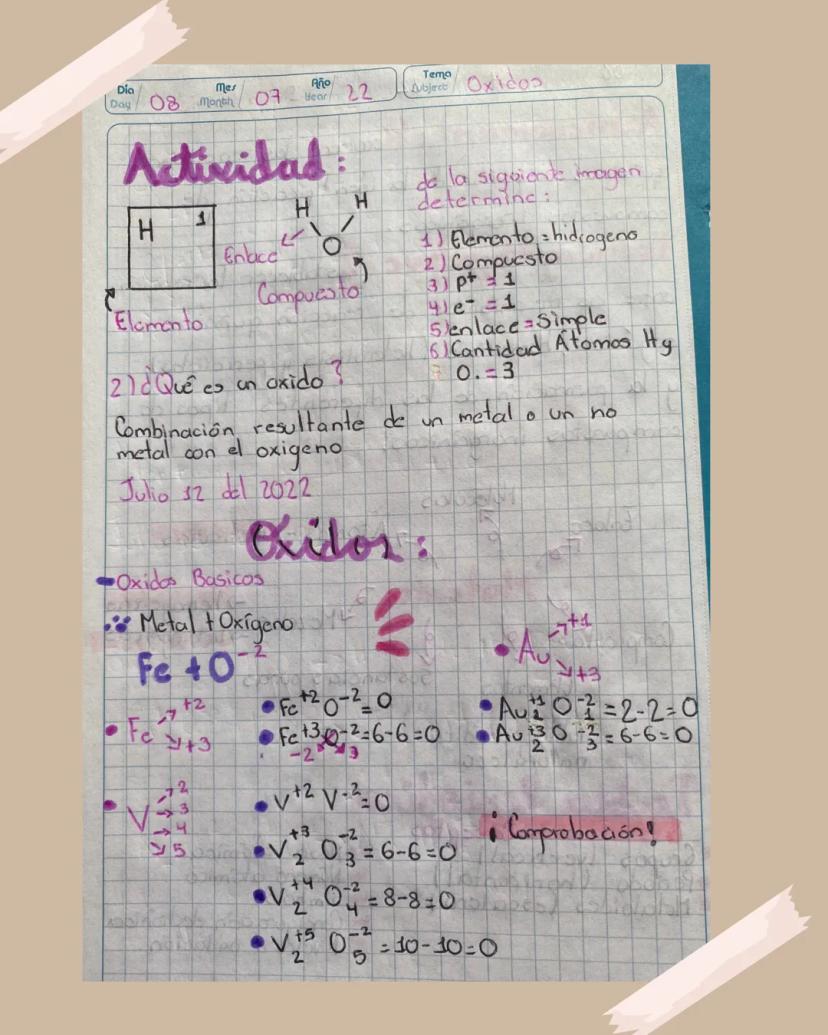 Día Day 08 Mes Month 07 Año Year 22 Tema Subject Oxidos
Actividad:
de la siguiente imagen
determine:
H 1
H H
O
Enlace
Compuesto
Elemento
1) Elemento = hidrogeno
2) Compuesto
3) p+ = 1
4) e- = 1
5) enlace = Simple
6) Cantidad Átomos H y
O. = 3
2) ¿Qué es un oxido?
Combinación resultante de un metal o un no
metal con el oxigeno
Julio 12 del 2022
Oxidos:
- Oxidos Basicos
Metal + Oxígeno
Fe + O-2
• Fe +2 +3
• Fe+2 O-2 = 0
• Fe+3 O-2 = 6-6=0
-2 3
• Au +1 +3
• Au+1 2 O-2 1 = 2-2=0
• Au+3 2 O-2 3 = 6-6=0
• V 2 3 4 5
• V+2 V-2 = 0
• V+3 2 O-2 3 = 6-6=0
• V+4 2 O-2 4 = 8-8=0
• V+5 2 O-2 5 = 10-10=0
¡Comprobación!